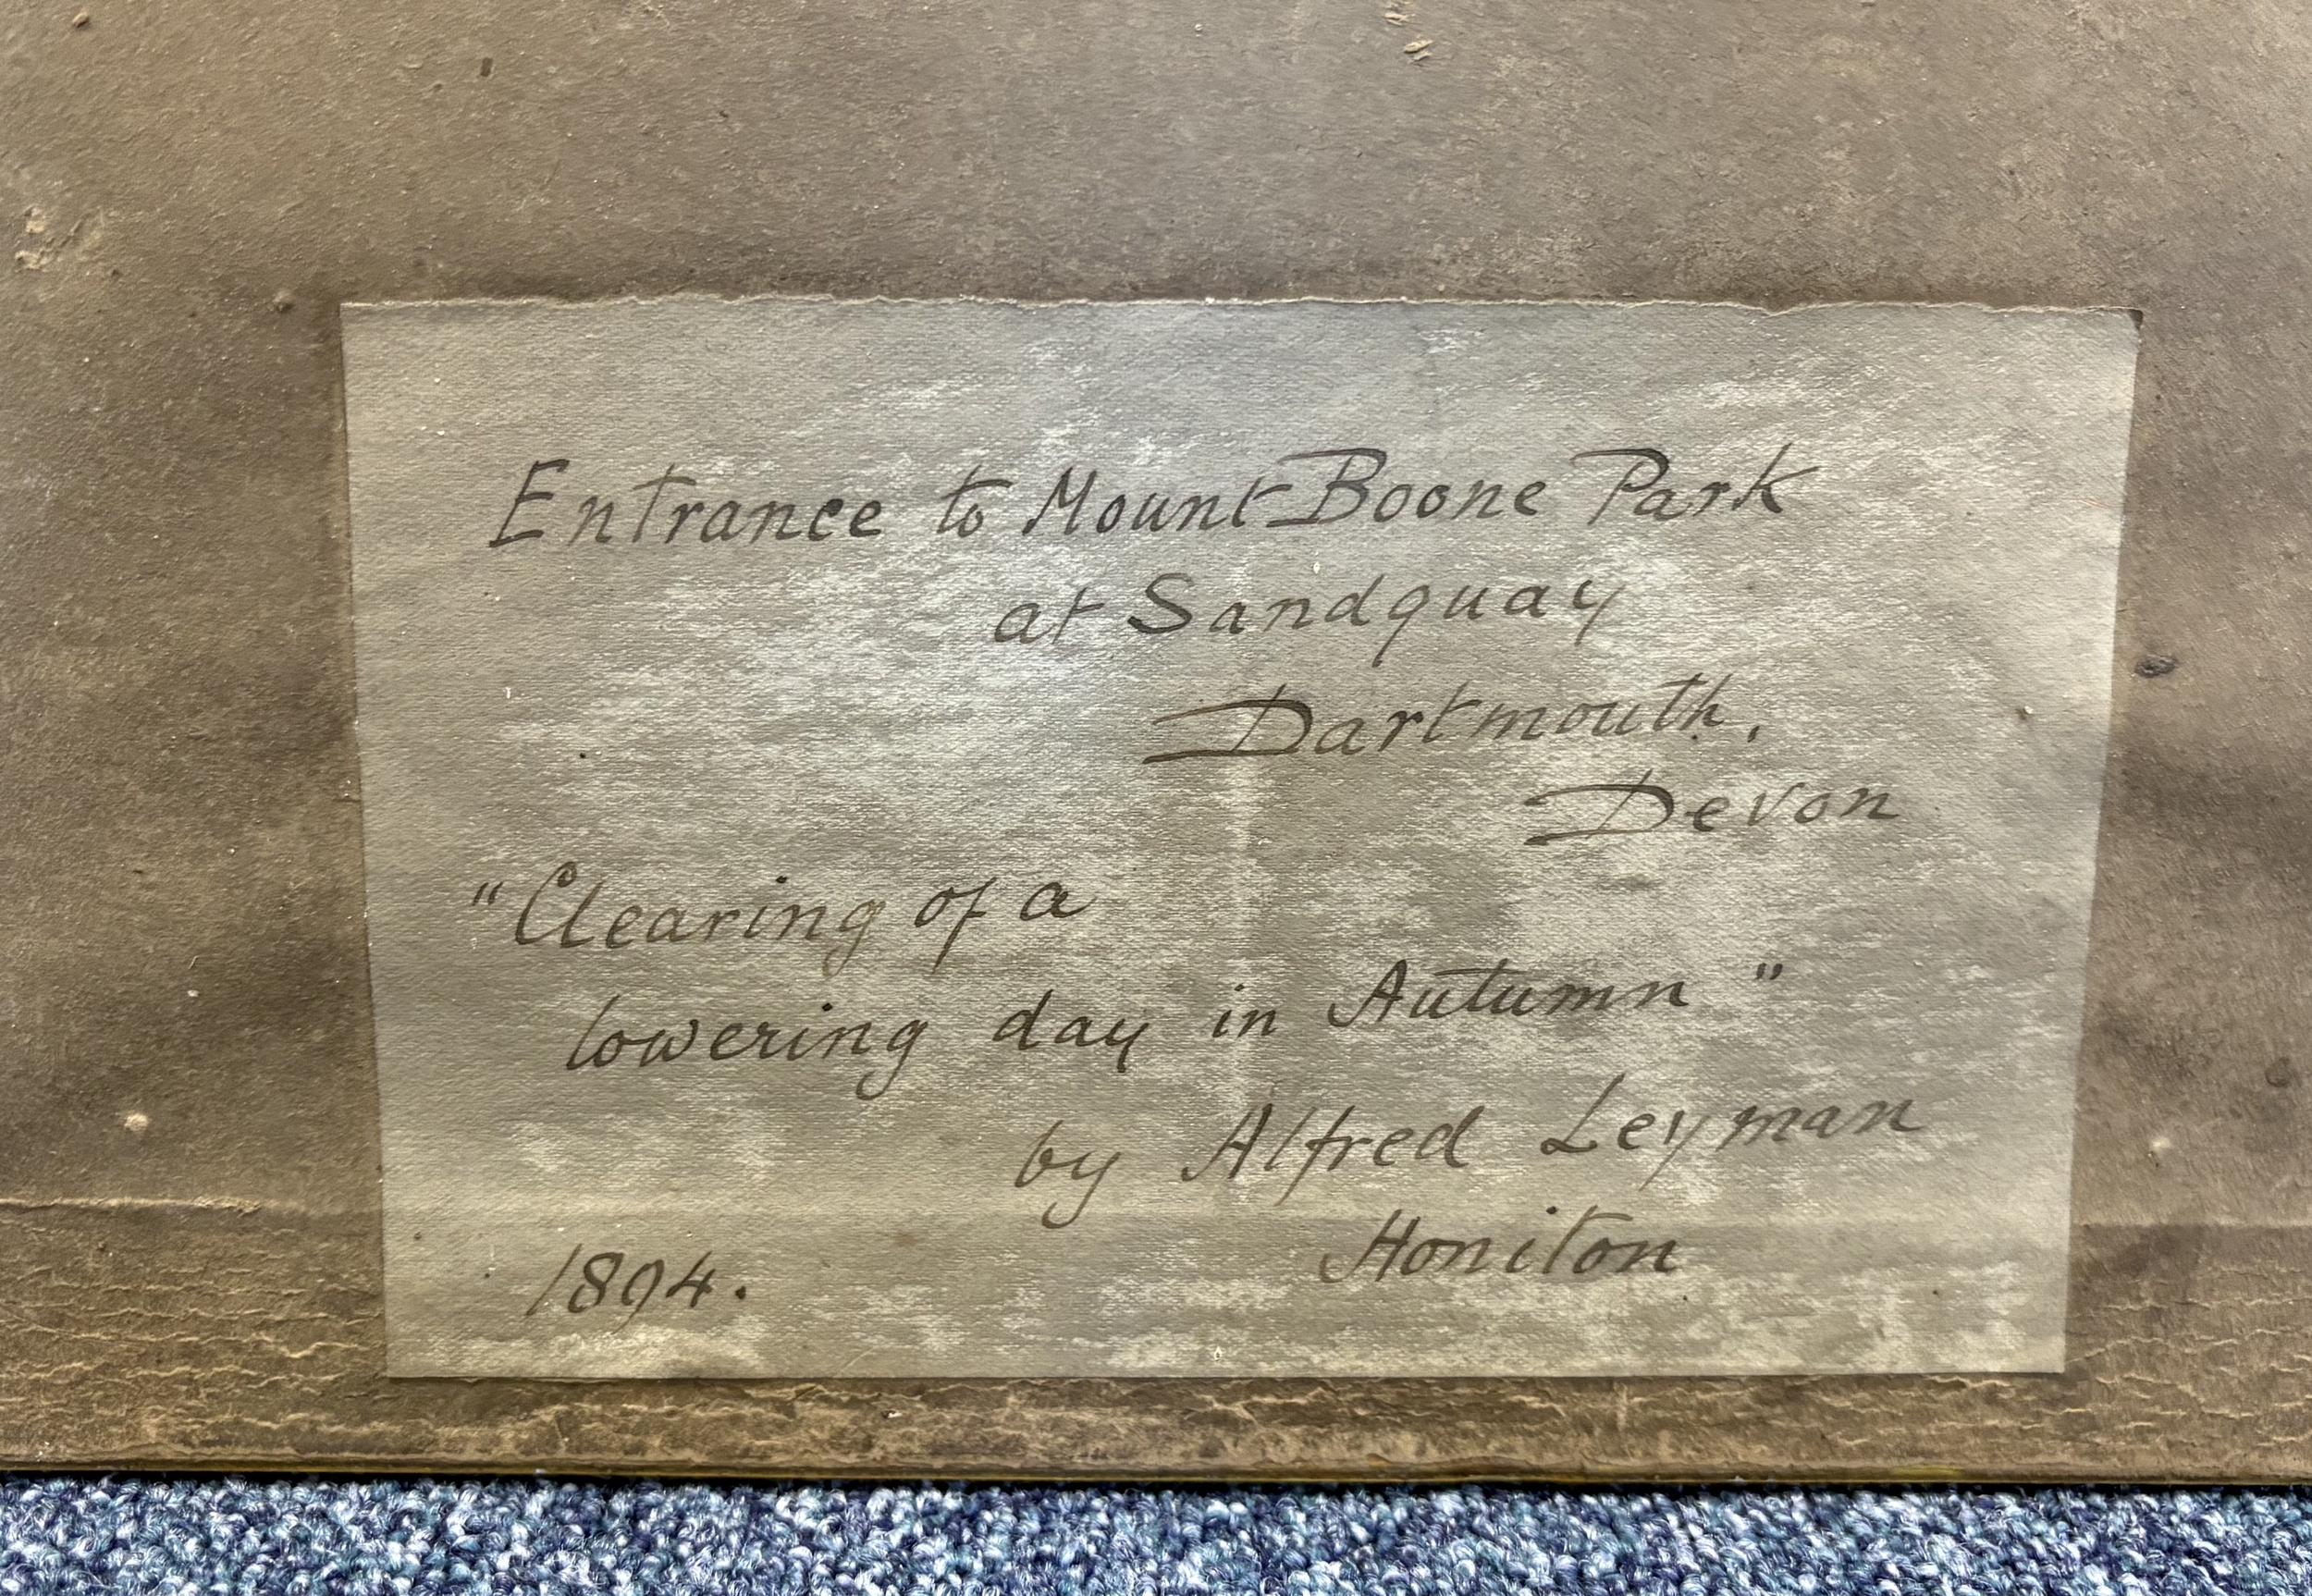 Entrance to Mount Boone Park
at Sandquay
Dartmouth.
Devon
"Clearing of a
lowering day in Autumn"
by Alfred Leyman
Honiton
1894.